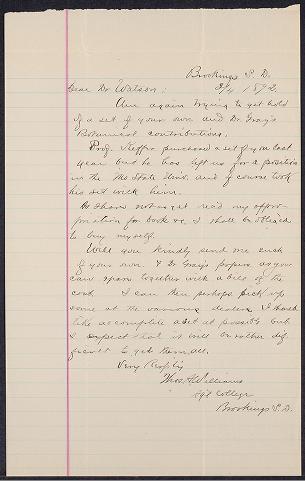 Brookings S. D.
3/4 1892.
Dear Dr Watson:
Am again trying to get hold
of a set of your own and Dr. Gray's
Botanical contributions.
Prof. Keffer purchased a set of you last
year but he has left us for a position
in the Mo State Univ. and of course took
his set with him.
As I have not as yet rec'd my appro-
priation for books &c, I shall be obliged
to buy myself.
Will you kindly send me such
of your own & Dr Gray's papers as you
can spare together with a bill of the
cost. I can then perhaps pick up
some at the various dealers. I would
like as complete a set as possible but
I expect that it will be rather dif-
ficult to get them all.
Very Respt'ly
Thos. A. Williams
Agl College
Brookings S. D.